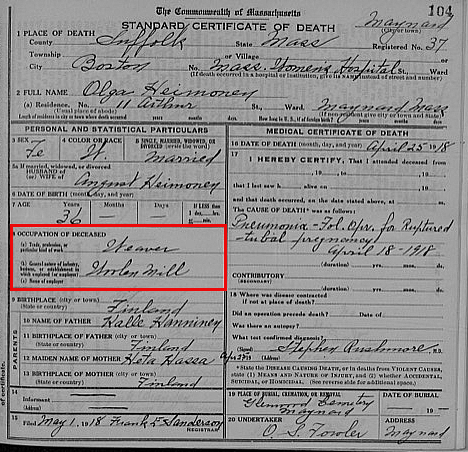 The Commonwealth of Massachusetts
104
STANDARD CERTIFICATE OF DEATH
Maynard
(City or town)
1 PLACE OF DEATH
County Suffolk State Mass Registered No. 37
Township or Village
City Boston No. Mass. Womens Hospital St., Ward
(If death occurred in a hospital or institution, give its NAME instead of street and number)
2 FULL NAME Olga Heimoney
(a) Residence. No. 11 Arthur St., Ward. Maynard Mass
(Usual place of abode) (If non resident give city or town and State)
Length of residence in city or town where death occurred
PERSONAL AND STATISTICAL PARTICULARS
3 SEX Fe
4 COLOR OR RACE W.
5 SINGLE, MARRIED, WIDOWED, OR DIVORCED (write the word) Married
5a If married, widowed, or divorced
HUSBAND of
(or) WIFE of August Heimoney
6 DATE OF BIRTH (month, day, and year)
7 AGE Years Months Days If LESS than
36 — —
8 OCCUPATION OF DECEASED
(a) Trade, profession, or
particular kind of work Weaver
(b) General nature of industry,
business, or establishment in
which employed (or employer) Woolen Mill
(c) Name of employer
9 BIRTHPLACE (city or town)
(State or country) Finland
PARENTS
10 NAME OF FATHER Kalle Hanniney
11 BIRTHPLACE OF FATHER (city or town)
(State or country) Finland
12 MAIDEN NAME OF MOTHER Kata Hassa
13 BIRTHPLACE OF MOTHER (city or town)
(State or country) Finland
14
Informant
(Address)
15 Filed May 1, 1918 Frank E Sanderson
REGISTRAR
MEDICAL CERTIFICATE OF DEATH
16 DATE OF DEATH (month, day, and year) April 25 1918
17 I HEREBY CERTIFY, That I attended deceased from
, 19 , to , 19
that I last saw h alive on , 19
and that death occurred, on the date stated above, at m.
The CAUSE OF DEATH* was as follows:
Pneumonia - Fol. Opr. for Ruptured
tubal pregnancy
April 18 - 1918
(duration) yrs. mos. ds.
CONTRIBUTORY
(SECONDARY)
(duration) yrs. mos. ds.
18 Where was disease contracted
if not at place of death?
Did an operation precede death? Date of
Was there an autopsy?
What test confirmed diagnosis?
(Signed) Stephen Rushmore, M.D.
*State the DISEASE CAUSING DEATH, or in deaths from VIOLENT CAUSES, state (1) MEANS AND NATURE OF INJURY, and (2) whether ACCIDENTAL, SUICIDAL, or HOMICIDAL. (See reverse side for additional space.)
19 PLACE OF BURIAL, CREMATION, OR REMOVAL DATE OF BURIAL
Glenwood Cemetery
Maynard 19
20 UNDERTAKER ADDRESS
O. S. Fowler Maynard
of certificate.